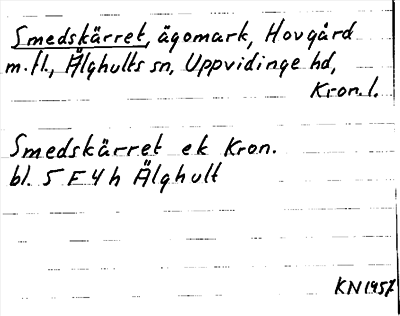 Smedskärret, ägomark, Hovgård
m.fl., Älghults sn, Uppvidinge hd,
Kron.l.
Smedskärret ek Kron.
bl. 5 F 4 h Älghult
KN 1957